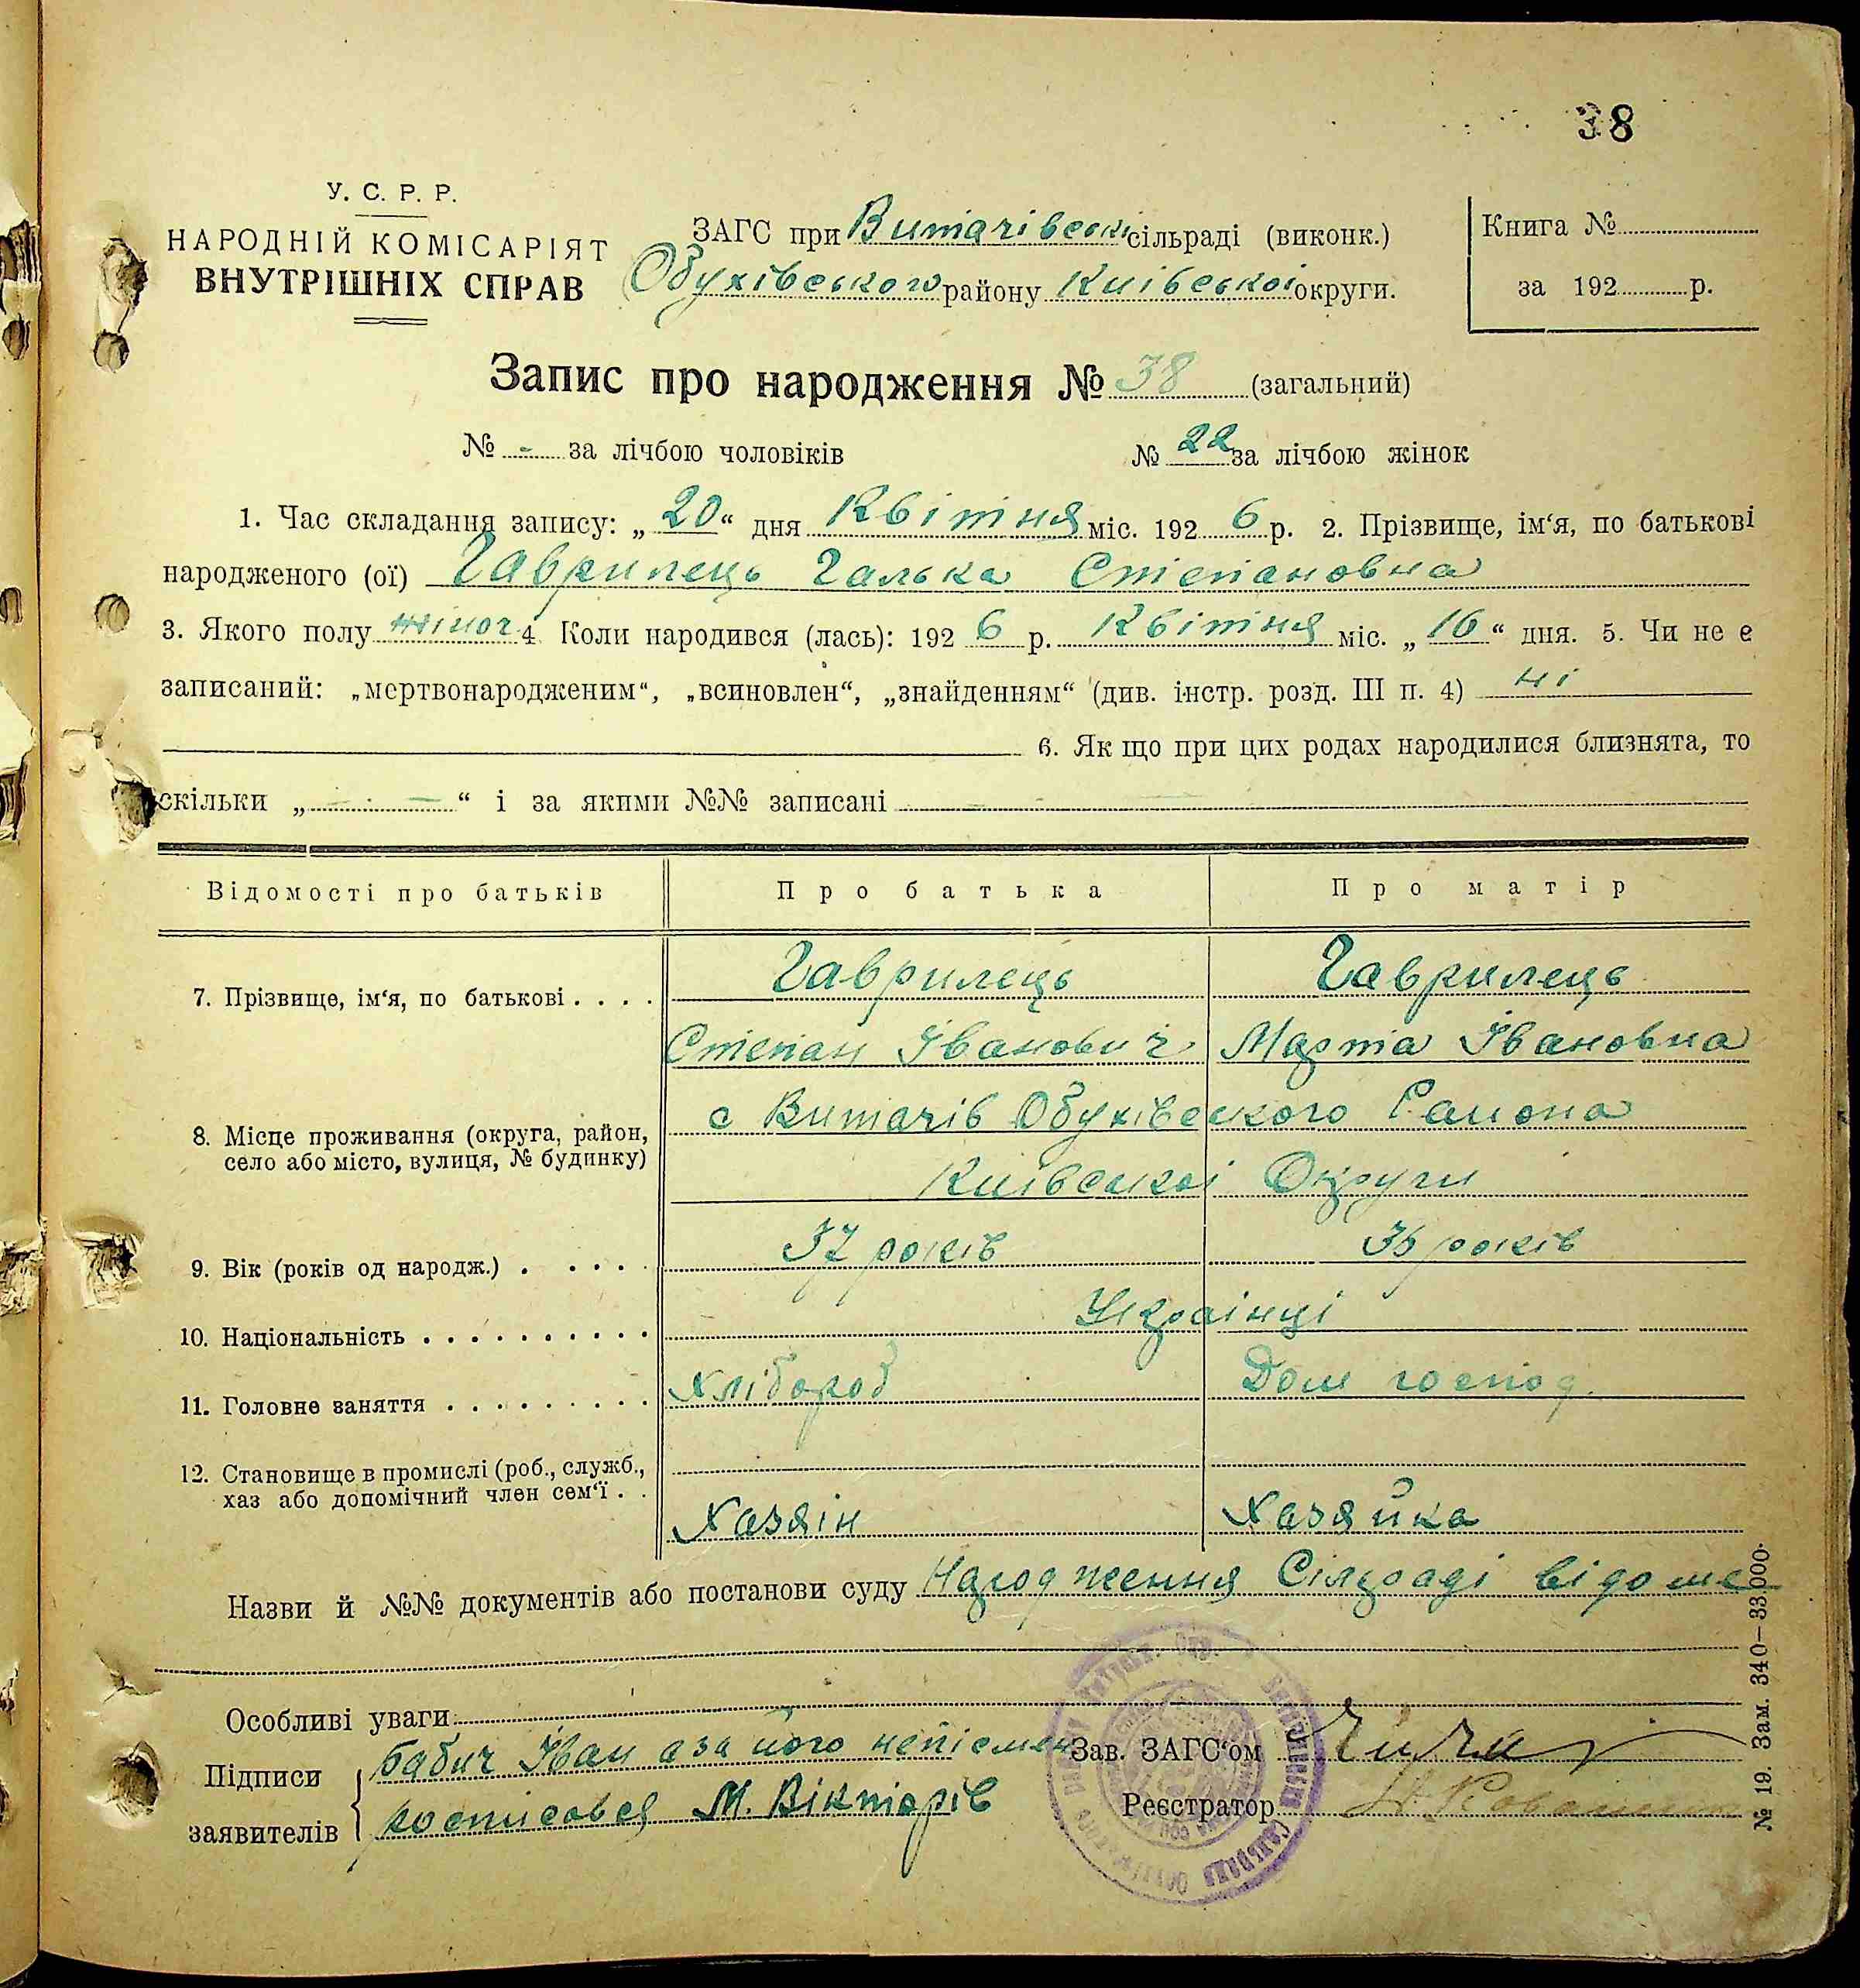 38
У. С. Р. Р.
НАРОДНІЙ КОМІСАРІЯТ
ВНУТРІШНІХ СПРАВ
ЗАГС при Витачівські сільраді (виконк.)
Обухівського району Київської округи.
Книга №
за 192 р.
Запис про народження № 38 (загальний)
№ - за лічбою чоловіків № 22 за лічбою жінок
1. Час складання запису: „20“ дня Квітня міс. 1926 р. 2. Прізвище, ім‘я, по батькові
народженого (ої) Гаврилець Галька Степановна
3. Якого полу жіноч 4. Коли народився (лась): 1926 р. Квітня міс. „16“ дня. 5. Чи не є
записаний: „мертвонародженим“, „всиновлен“, „знайденням“ (див. інстр. розд. III п. 4) ні
6. Як що при цих родах народилися близнята, то
скільки „ - - “ і за якими №№ записані - -
Відомості про батьків Про батька Про матір
7. Прізвище, ім‘я, по батькові . . . . Гаврилець Гаврилець
Степан Іванович Марта Івановна
8. Місце проживання (округа, район, село або місто, вулиця, № будинку) с Витачів Обухівського Району
Київської Округи
9. Вік (років од народж.) . . . . . 37 років 35 років
10. Національність . . . . . . . . . . Українці
11. Головне заняття . . . . . . . . . Хлібороб Дом господ.
12. Становище в промислі (роб., служб.,
хаз або допомічний член сем‘ї . . Хазяїн Хазяйка
Назви й №№ документів або постанови суду Народження Сілраді відоме
Особливі уваги
Підписи заявителів Бабич Іван а за його непісмен
росписовся М. Вікторів
Зав. ЗАГС‘ом
Реєстратор
№ 19. Зам. 340–33.000.